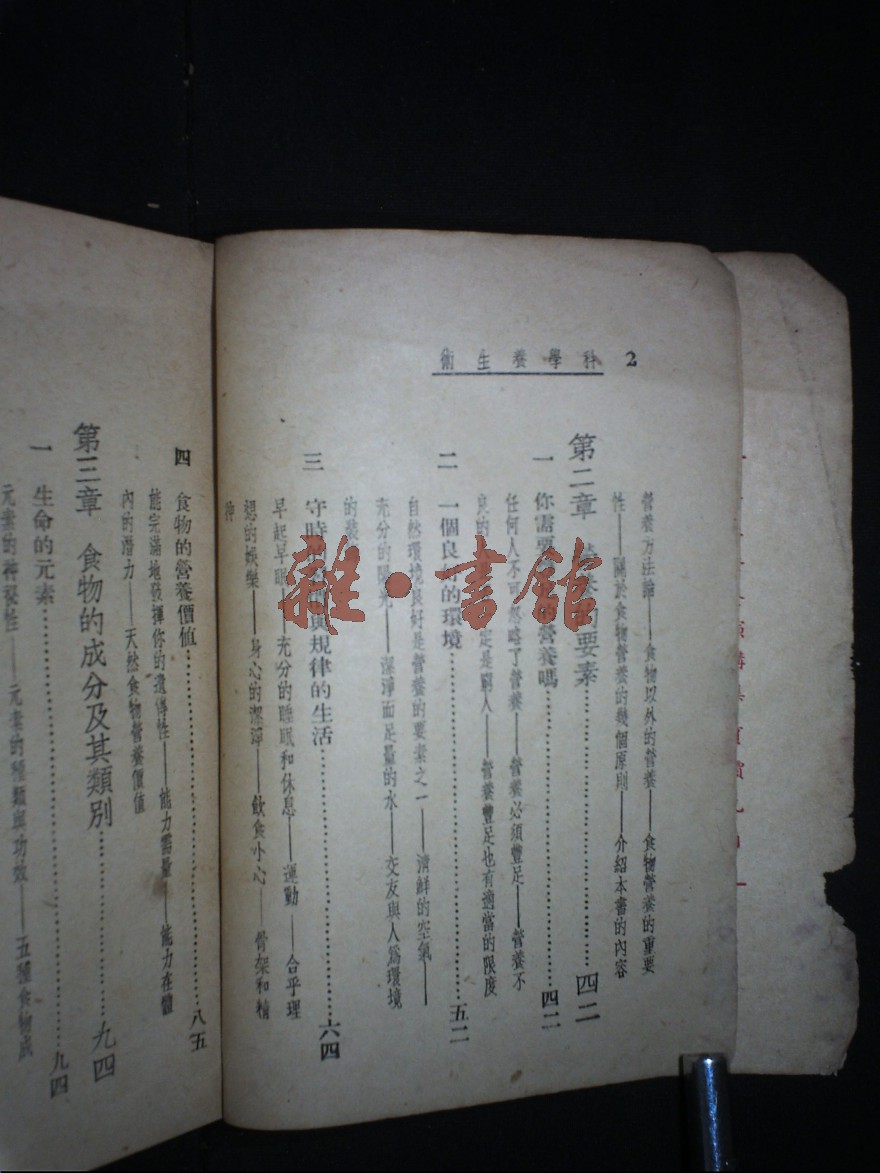 2 科學養生術
營養方法論——食物以外的營養——食物營養的重要
性——關於食物營養的幾個原則——介紹本書的內容
第二章 營養的要素……四二
一 你需要 的營養嗎……四二
任何人不可忽略了營養——營養必須豐足——營養不
良的 定是窮人——營養豐足也有適當的限度
二 一個良好的環境……五二
自然環境良好是營養的要素之一——清鮮的空氣——
充分的陽光——潔淨而足量的水——交友與人為環境
的裝
三 守時的 與規律的生活……六四
早起早眠 充分的睡眠和休息——運動——合乎理
想的娛樂——身心的潔淨——飲食小心——骨架和精
神
四 食物的營養價值……八五
能完滿地發揮你的遺傳性——能力需量——能力在體
內的潛力——天然食物營養價值
第三章 食物的成分及其類別……九四
一 生命的元素……九四
元素的神祕性——元素的種類與功效——五種食物成
雜·書館